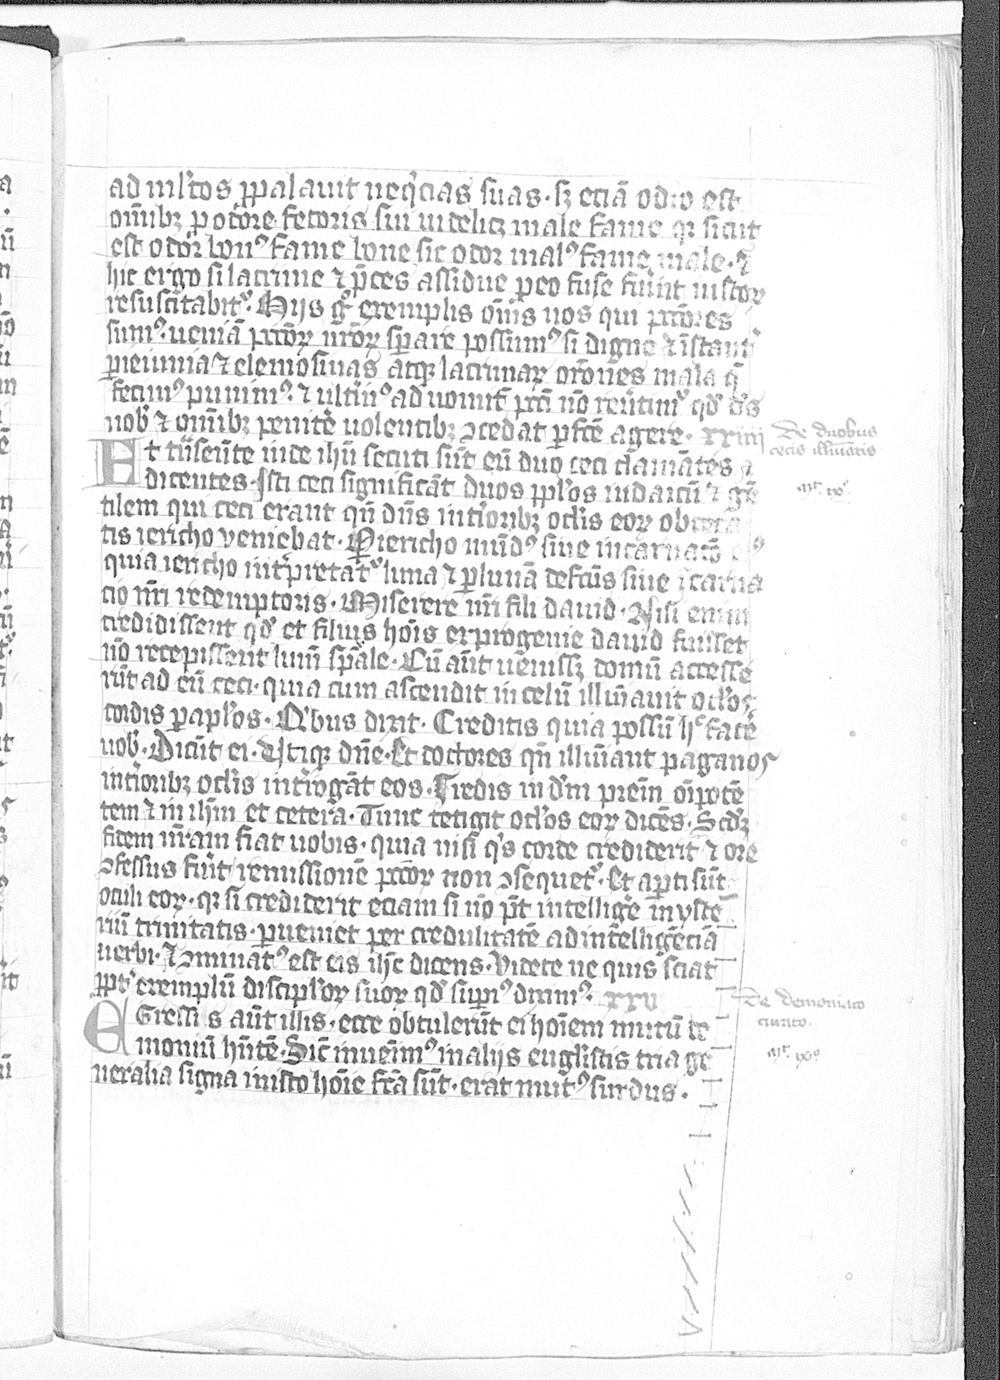 ad ml̛tos ꝓpalauit neq̇cias suas · sꝫ eciā odio est
om̄ibꝫ p odore fetoris sui videlicꝫ male fame qꝛ sicut
est odor bonꝰ fame bone sic odor malꝰ fame male · ⁊
hic ergo si lacrime ⁊ p̄ces assidue p eo fuse fuīt iustoꝝ
resuscitabit᷒ · Hijs gͦ exemplis om̄s nos qui pctōres
sumꝰ · ueniā pctōꝝ nr̄oꝝ sꝑare possumꝰ si digne ⁊
ꝑ ieiunia ⁊ elemosinas atqꝫ lacrimaꝝ orōnes mala q̄
fecimꝰ punimꝰ · ⁊ ultiꝰ ad uomit̄ pctī nō reūtimꝰ qd̛ d̄s
nob̛ ⁊ om̄ibꝫ penitē̛ uolentibꝫ ꝯcedat ꝑfcē agere · xxiiii
Et trāseūte inde ih̄u secuti sūt eū duo ceci clamātes ⁊
dicentes · Isti ceci significāt duos ppl̛os iudaicū ⁊ gē
tilem qui ceci erant qn̄ dn̄s int̛ioribꝫ oclīs eoꝝ
tis iericho veniebat · P iericho mūdꝰ siue incarnacō
quia iericho int̛pretat᷒ luna ⁊ ꝑ lunā defcūs siue īcarna
cio nr̄i redemptoris · Miserere nr̄i fili dauid · Nisi enim
credidissent qd̛ et filius hoīs ex progenie dauid fuisset
nō recepissent lumē spāle · Cū aūt uenissꝫ domū accesse
rūt ad eū ceci · quia cum ascendit in celū illūīauit ocl̛os
cordis ꝑ apl̛os · Qͥbus dixit · Creditis quia possū hͨ face̛
uob̛ · Dicūt ei · Utiqꝫ dn̄e · Et doctores qn̄ illūīant paganos
int̛ioribꝫ oclīs int̛rogāt eos · Credis in dm̄ prem̄ oīpotē
tem ⁊ in ih̄m et cetera · Tunc tetigit ocl̛os eoꝝ dicēs · Scdꝫ
fidem ur̄am fiat uobis · quia nisi qͥs corde crediderit ⁊ ore
ꝯfessus fūit remissionē pctōꝝ non ꝯsequet᷒ · Et apti sūt
oculi eoꝝ · qꝛ si crediderit eciam si nō pōt intellige̛ myste
riū trinitatis · ꝑueniet per credulitatē ad intelligēciā
uerbi · Et ꝯminatꝰ est eis ih̄c dicens · Videte ne quis sciat
ꝓpt̛ exemplū discipl̛oꝝ suoꝝ qd̛ sup̄ꝰ diximꝰ · xxv
EGressis aūt illis · ecce obtulerūt ei hoīem mutū de
moniū hn̄tē · Sic̄ inuenimꝰ in alijs eugl̛istis tria ge
neralia signa in isto hoīe fcā sūt · erat mutꝰ surdus ·
De duobus
cecis illūīatis
mt̛ ixº
De demoniaco
curato ·
mt̛ ixº